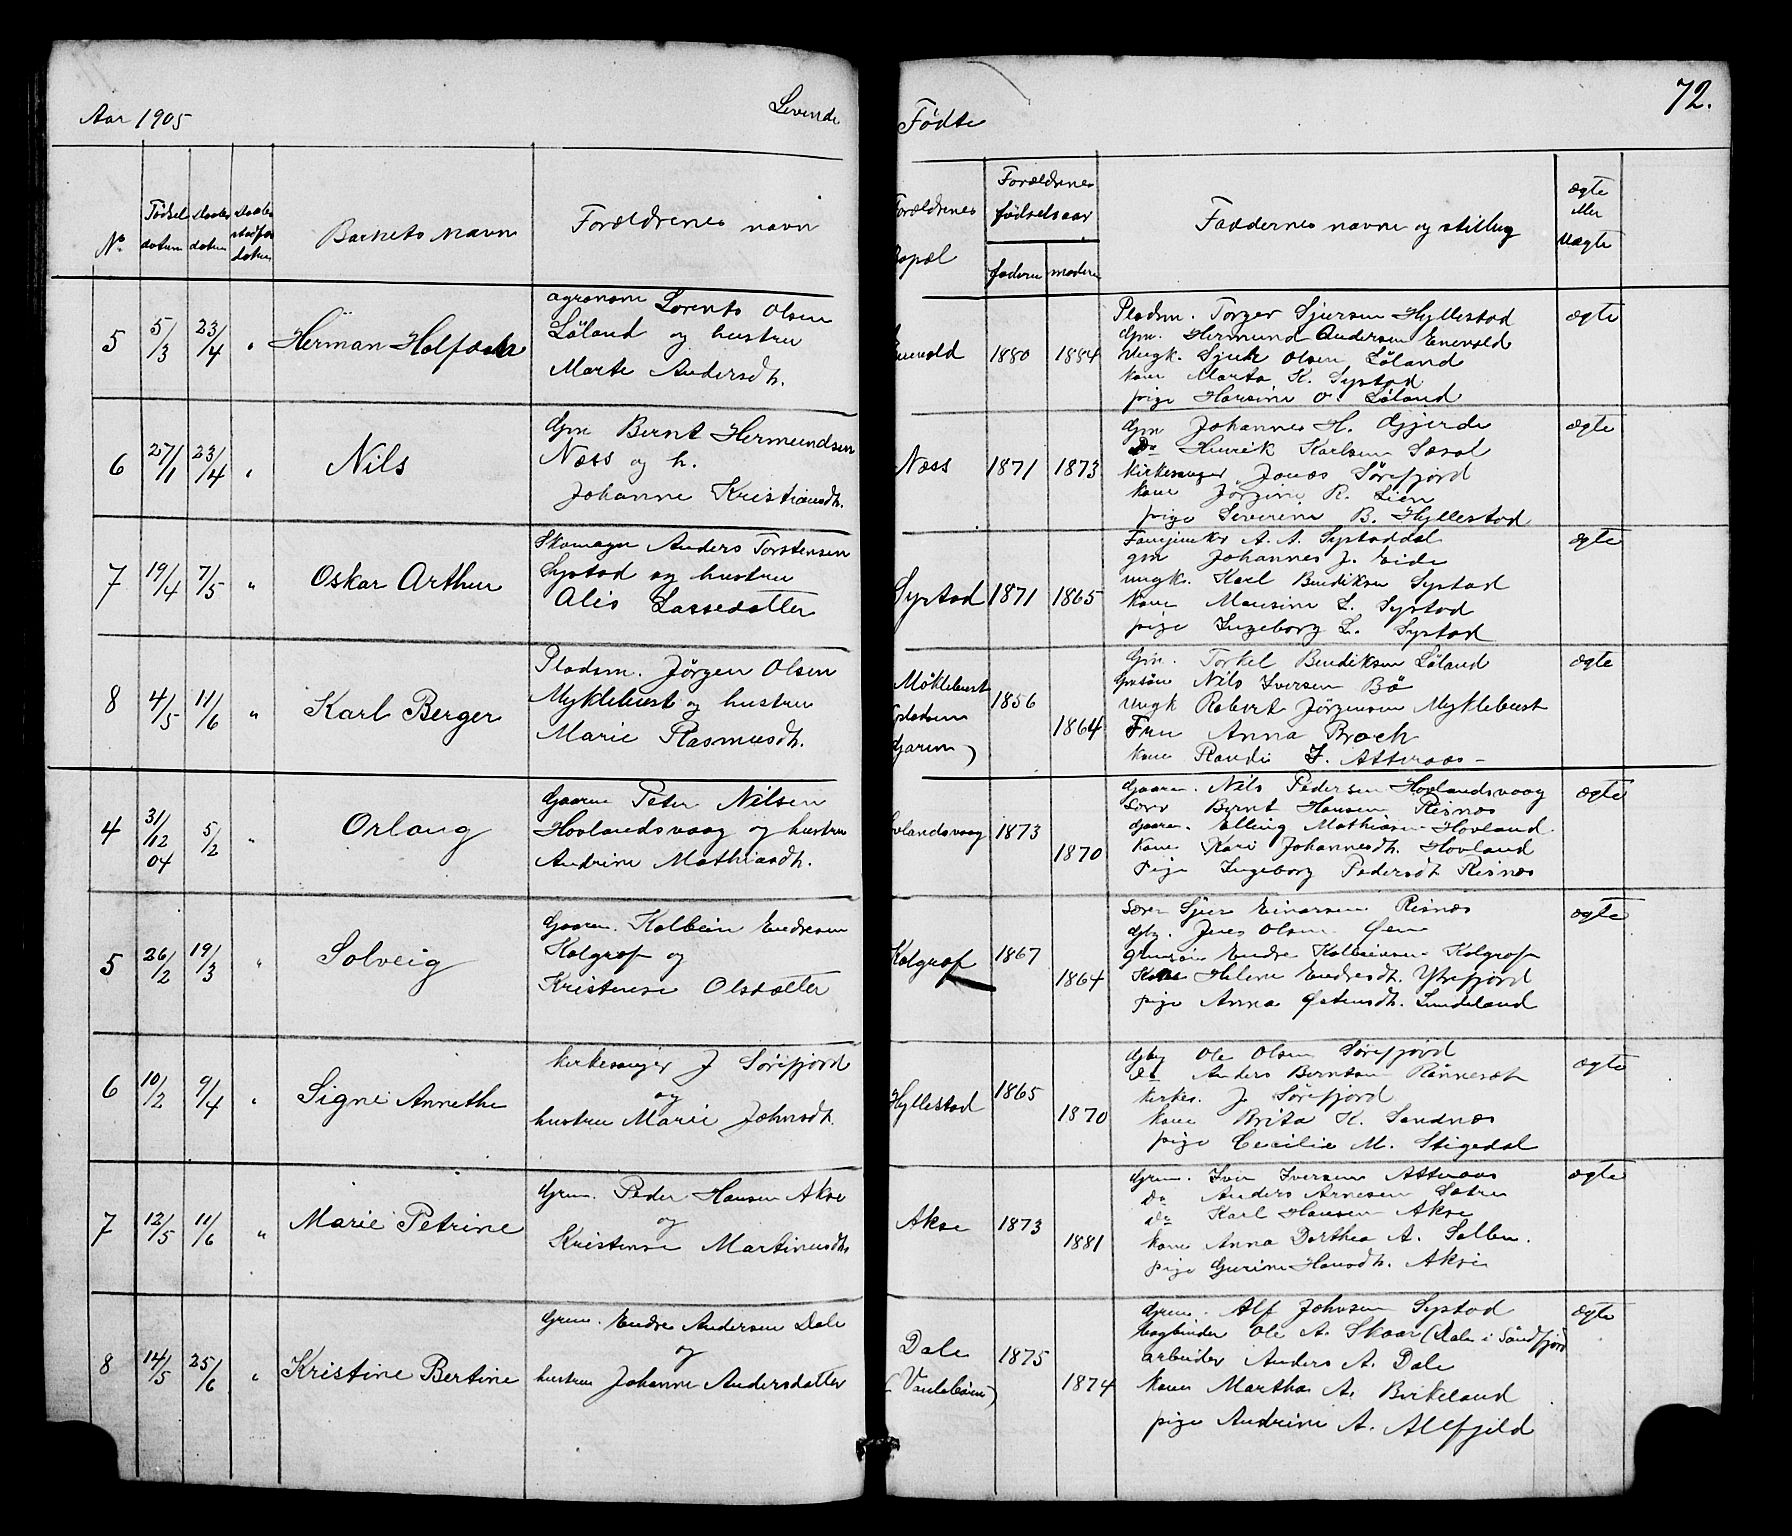 Aar 1905
Levende
Fødte
72.
No
Fødsel datum
Daabs datum
Barnets navn
Forældrenes navn
Forældrenes
Bopæl
Forældrenes fødselsaar
faderen
moderen
Faddernes navne og stilling
ægte eller uægte
5 5/3 23/4 " Herman Halfdan
agronom Lorents Olsen
Løland og hustru
Marte Andersdt.
Enevold 1880 1884
Pladsm. Torger Sjursen Hyllestad
Gm. Hermund Andersen Enevold
Ungk. Sjur Olsen Løland
kone Marta K. Systad
pige Hansine O. Løland
ægte
6 27/1 23/4 " Nils
Gm Bernt Hermundsen
Næss og h.
Johanne Kristiansdt.
Næss 1871 1873
Gm Johannes H. Gjerde
Do Henrik Karlsen
Kirkesanger Jonas Sørefjord
kone Jørgine R. Lien
pige Severine B. Hyllestad
ægte
7 19/4 7/5 " Oskar Arthur
Skomager Anders Torstensen
Systad og hustru
Alis Lassedatter
Systad 1871 1865
A. A. Systaddal
gm Johannes J. Eide
ungk. Karl Bendiksen Systad
kone Mansine L. Systad
pige Ingeborg L. Systad
ægte
8 4/5 11/6 " Karl Berger
Pladsm. Jørgen Olsen
Myklebust og hustru
Marie Rasmusdt.
Møklebust
1856 1864
Gm. Torkel Bendiksen Løland
Nils Iversen Bø
Ungk Robert Jørgensen Myklebust
Fru Anna Broch
kone Randi I. Atteraas
ægte
4 31/12 04 5/2 " Orlaug
Gaarm Peter Nilsen
Hovlandsvaag og hustru
Andrine Mathiasdt.
Hovlandsvaag 1873 1870
Gaarm. Nils Pedersen Hovlandsvaag
Bernt Hansen Risnæs
Gaarm. Elling Mathiasen Hovland
Kone Kari Johannesdt. Hovland
Pige Ingeborg Pedersdt Risnæs
ægte
5 26/2 19/3 " Solveig
Gaarm. Kolbein Endresen
Kolgrof og
Kristense Olsdatter
Kolgrof 1867 1864
Sjur Einarsen Risnæs
Gbr. Jens Olsen Øen
Endre Kolbeinsen Kolgrof
Kone Helene Endresdt. Ytrefjord
pige Anna Østensdt. Lundeland
ægte
6 10/2 9/4 " Signe Annethe
kirkesanger J Sørefjord
og
hustru Marie Johnsdt.
Hyllestad 1865 1870
Gbr Ole Olsen Sørefjord
Do Anders Berntsen Rønneset
kirkes. J. Sørefjord
kone Brita K. Sandnæs
pige Cecilie M. Stigedal
ægte
7 12/5 11/6 " Marie Petrine
Grm. Peder Hansen Akse
og
Kristense Martinusdt.
Akse 1873 1881
Grm. Iver Iversen Atteraas
Do Anders Arnesen Sætre
Do Karl Hansen Akse
kone Anna Dorthea A. Solbu.
pige Gurine Hansdt. Akse
ægte
8 14/5 25/6 " Kristine Bertine
Grm. Endre Andersen Dale
og
hustru Johanne Andersdatter
Dale
1875 1874
Grm. Alf Johnsen Systad
bogbinder Ole A. Skaar (Dale i Søndfjord)
arbeider Anders A. Dale
kone Martha A. Birkeland
pige Andrine A. Allfjeld
ægte